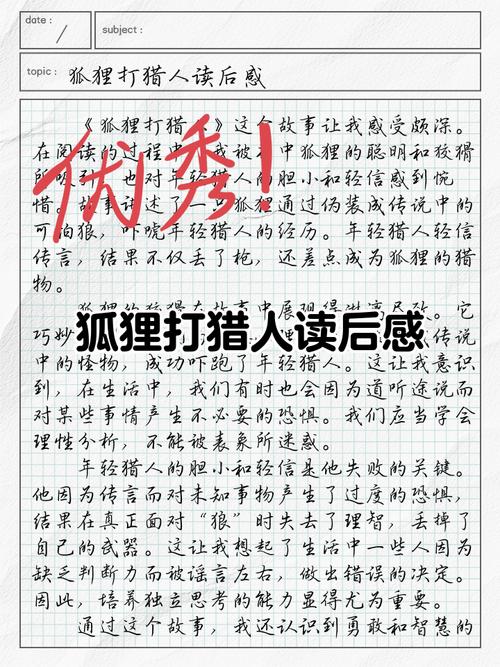 date :
subject :
topic : 狐狸打猎人读后感
《狐狸打猎 》这个故事让我感受颇深。
在阅读的过程 我被 中狐狸的聪明和狡猾
所 也对年轻猎人的胆小和轻信感到惋
惜。故事讲述了一只狐狸通过伪装成传说中的
可怕狼，吓唬年轻猎人的经历。年轻猎人轻信
传言，结果不仅丢了枪，还差点成为狐狸的猎
物。
优秀！
狐狸打猎人读后感
巧妙 传说
中的怪物，成功吓跑了年轻猎人。这让我意识
到，在生活中，我们有时也会因为道听途说而
对某些事情产生不必要的恐惧。我们应当学会
理性分析，不能被表象所迷惑。
年轻猎人的胆小和轻信是他失败的关键。
他因为传言而对未知事物产生了过度的恐惧，
结果在真正面对“狼”时失去了理智，丢掉了
自己的武器。这让我想起了生活中一些人因为
缺乏判断力而被谣言左右，做出错误的决定。
因此，培养独立思考的能力显得尤为重要。
通过这个故事，我还认识到勇敢和智慧的